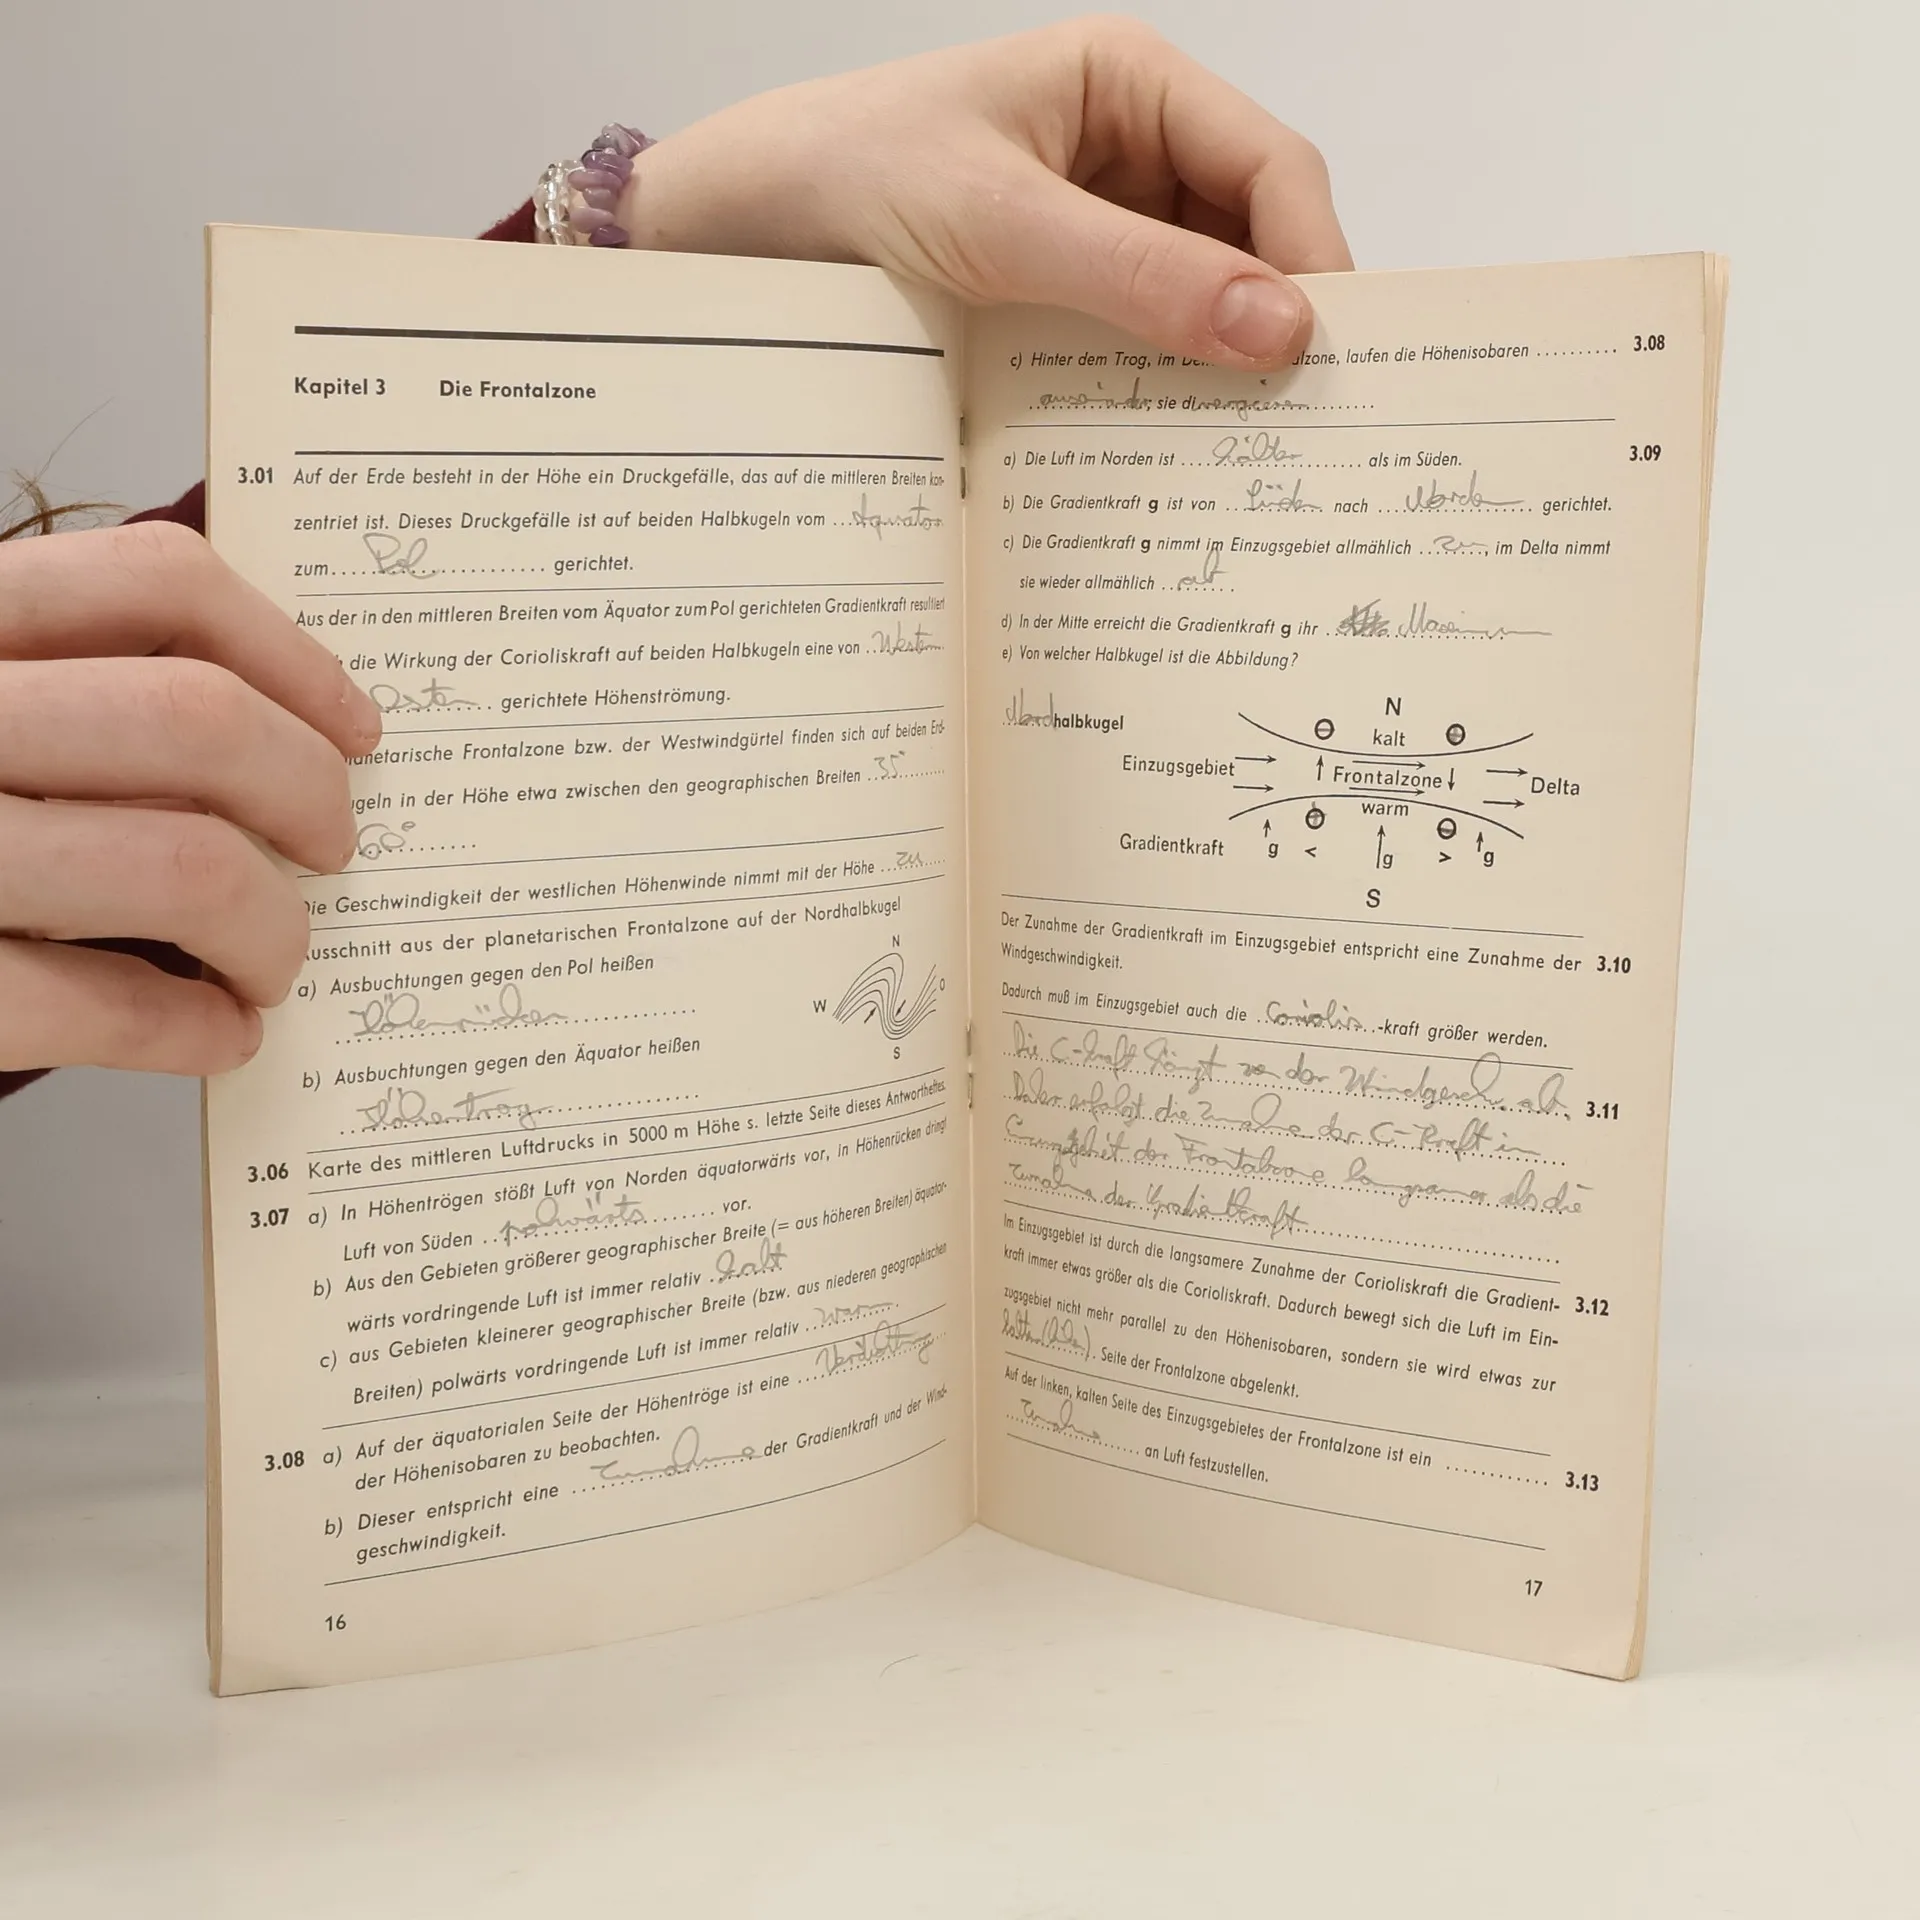 Kapitel 3 Die Frontalzone
3.01 Auf der Erde besteht in der Höhe ein Druckgefälle, das auf die mittleren Breiten kon-
zentriert ist. Dieses Druckgefälle ist auf beiden Halbkugeln vom ... Äquator
zum..... Pol .................. gerichtet.
Aus der in den mittleren Breiten vom Äquator zum Pol gerichteten Gradientkraft resultiert
die Wirkung der Corioliskraft auf beiden Halbkugeln eine von .. Westen
Osten ..... gerichtete Höhenströmung.
Frontalzone bzw. der Westwindgürtel finden sich auf beiden Erd-
in der Höhe etwa zwischen den geographischen Breiten ..35°........
60° .........
Die Geschwindigkeit der westlichen Höhenwinde nimmt mit der Höhe ... zu .....
Ausschnitt aus der planetarischen Frontalzone auf der Nordhalbkugel
a) Ausbuchtungen gegen den Pol heißen
Höhenrücken
b) Ausbuchtungen gegen den Äquator heißen
Höhentrog
N
W
O
S
3.06 Karte des mittleren Luftdrucks in 5000 m Höhe s. letzte Seite dieses Antwortheftes.
3.07 a) In Höhentrögen stößt Luft von Norden äquatorwärts vor, in Höhenrücken dringt
Luft von Süden .. polwärts ........ vor.
b) Aus den Gebieten größerer geographischer Breite (= aus höheren Breiten) äquator-
wärts vordringende Luft ist immer relativ . kalt
c) aus Gebieten kleinerer geographischer Breite (bzw. aus niederen geographischen
Breiten) polwärts vordringende Luft ist immer relativ .. warm ..
3.08 a) Auf der äquatorialen Seite der Höhentröge ist eine ... Verdichtung
der Höhenisobaren zu beobachten.
b) Dieser entspricht eine ... Zunahme der Gradientkraft und der Wind-
geschwindigkeit.
16
c) Hinter dem Trog, im lzone, laufen die Höhenisobaren .......... 3.08
auseinander; sie divergieren..........
a) Die Luft im Norden ist .... kälter .......... als im Süden. 3.09
b) Die Gradientkraft g ist von .. Süden .. nach ... Norden ... gerichtet.
c) Die Gradientkraft g nimmt im Einzugsgebiet allmählich .. zu ..., im Delta nimmt
sie wieder allmählich .. ab ....
d) In der Mitte erreicht die Gradientkraft g ihr .. Maximum
e) Von welcher Halbkugel ist die Abbildung?
Nordhalbkugel
N
kalt
Einzugsgebiet Frontalzone Delta
warm
Gradientkraft g < g > g
S
Der Zunahme der Gradientkraft im Einzugsgebiet entspricht eine Zunahme der 3.10
Windgeschwindigkeit.
Dadurch muß im Einzugsgebiet auch die .. Coriolis ..-kraft größer werden.
Die C-kraft hängt von der Windgeschw. ab. 3.11
Daher erfolgt die Zunahme der C-Kraft im
Einzugsgebiet der Frontalzone langsamer als die
Zunahme der Gradientkraft
Im Einzugsgebiet ist durch die langsamere Zunahme der Corioliskraft die Gradient- 3.12
kraft immer etwas größer als die Corioliskraft. Dadurch bewegt sich die Luft im Ein-
zugsgebiet nicht mehr parallel zu den Höhenisobaren, sondern sie wird etwas zur
kalten (linken). Seite der Frontalzone abgelenkt.
Auf der linken, kalten Seite des Einzugsgebietes der Frontalzone ist ein ............ 3.13
Zunahme ...... an Luft festzustellen.
17